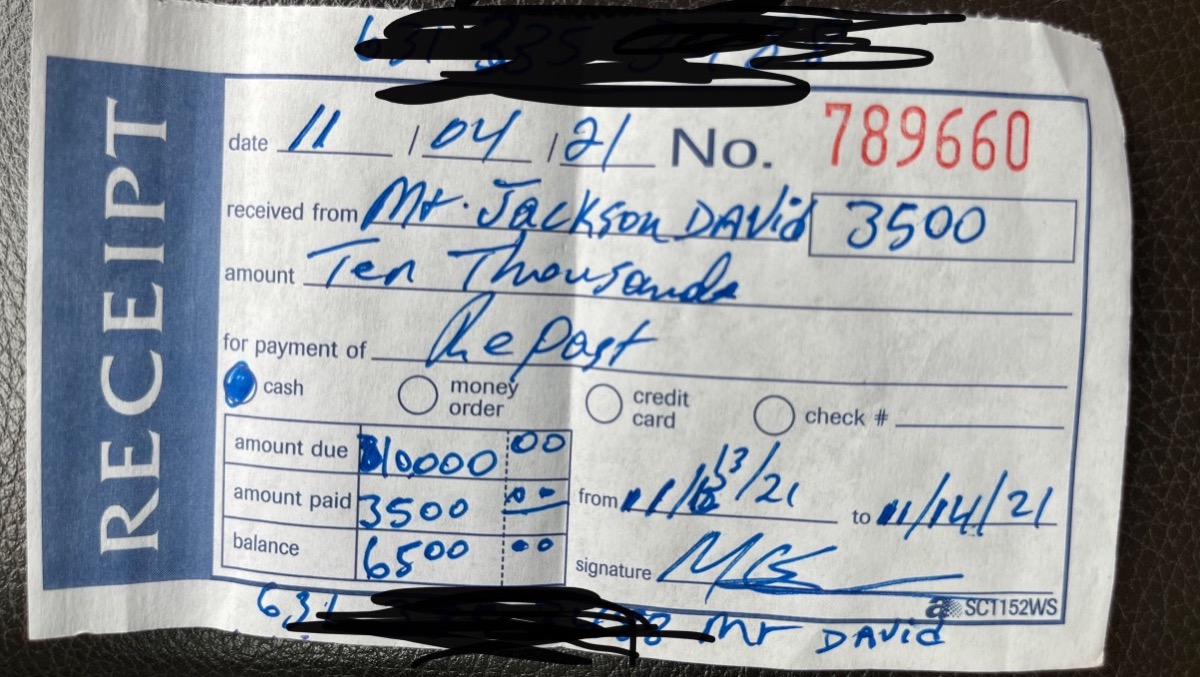 631
RECEIPT
date 11 / 04 / 21 No. 789660
received from Mr. Jackson DAVid 3500
amount Ten Thousands
for payment of Repast
cash money order credit card check #
amount due 10000 00
amount paid 3500 00 from 11/13/21 to 11/14/21
balance 6500 00
signature
a SCT152WS
631 Mr DAVid